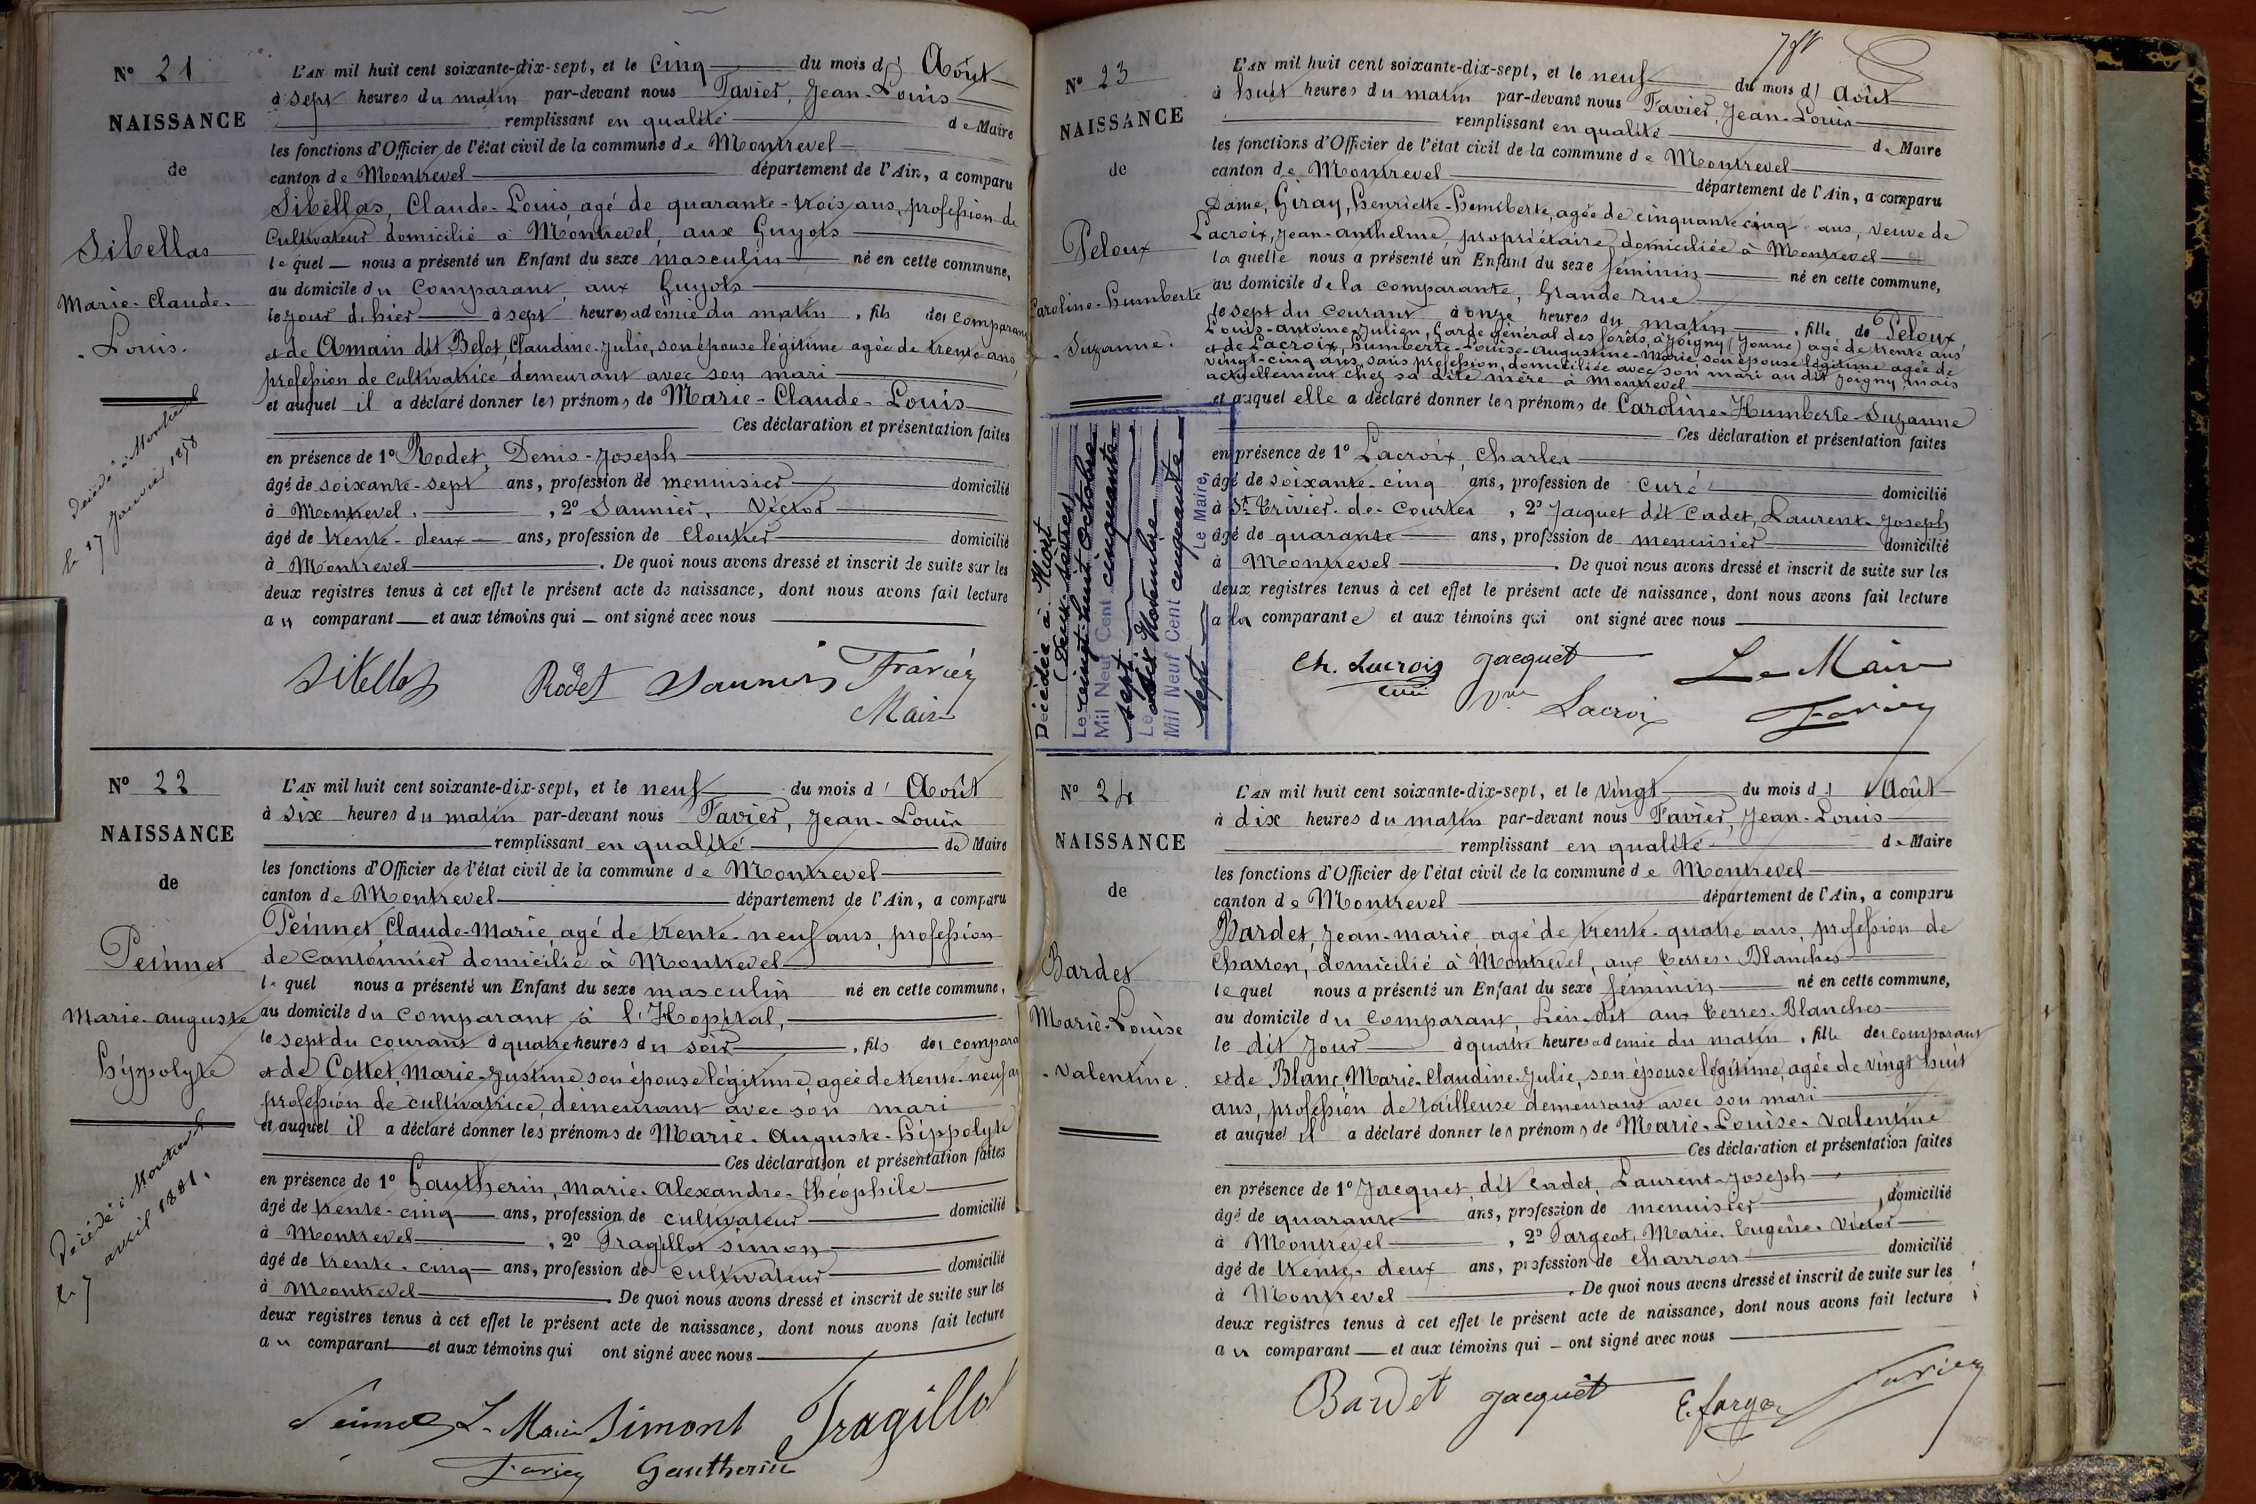 Nº 21
NAISSANCE
de
Sibellas
Marie-Claude-
Louis.
Décédé à Montrevel
le 17 Janvier 1878
L'AN mil huit cent soixante-dix-sept, et le cinq du mois d' Août
à sept heures du matin par-devant nous Favier, Jean-Louis
remplissant en qualité de Maire
les fonctions d'Officier de l'état civil de la commune de Montrevel
canton de Montrevel département de l'Ain, a comparu
Sibellas, Claude-Louis, agé de quarante-trois ans, profession de
Cultivateur domicilié à Montrevel, aux Guyots
lequel nous a présenté un Enfant du sexe masculin né en cette commune,
au domicile du Comparant, aux Guyots
le jour d'hier à sept heures et demie du matin, fils des comparant
et de Amain dit Belot Claudine-Julie, son épouse légitime agée de trente ans,
profession de cultivatrice demeurant avec son mari
et auquel il a déclaré donner les prénoms de Marie-Claude-Louis
Ces déclaration et présentation faites
en présence de 1º Rodet, Denis-Joseph
âgé de soixante-sept ans, profession de menuisier domicilié
à Montrevel, 2º Saunier, Victor
âgé de trente-deux ans, profession de Cloutier domicilié
à Montrevel. De quoi nous avons dressé et inscrit de suite sur les
deux registres tenus à cet effet le présent acte de naissance, dont nous avons fait lecture
au comparant et aux témoins qui ont signé avec nous
Sibellas Rodet Saunier Favier
Maire
Nº 22
NAISSANCE
de
Peinnet
Marie-Auguste
Hippolyte
Décédé à Montrevel
le 7 avril 1881.
L'AN mil huit cent soixante-dix-sept, et le neuf du mois d' Août
à six heures du matin par-devant nous Favier, Jean-Louis
remplissant en qualité de Maire
les fonctions d'Officier de l'état civil de la commune de Montrevel
canton de Montrevel département de l'Ain, a comparu
Peinnet, Claude-Marie, agé de trente-neuf ans, profession
de Cantonnier domicilié à Montrevel
lequel nous a présenté un Enfant du sexe masculin né en cette commune,
au domicile du comparant à l'Hopital,
le sept du courant à quatre heures du soir, fils des compara
et de Cottet, Marie-Justine son épouse légitime, agée de trente-neuf an
profession de cultivatrice, demeurant avec son mari
et auquel il a déclaré donner les prénoms de Marie-Auguste-Hippolyte
Ces déclaration et présentation faites
en présence de 1º Gautherin, Marie-Alexandre-Théophile
âgé de trente-cinq ans, profession de cultivateur domicilié
à Montrevel, 2º Fragillot Simon
âgé de trente-cinq ans, profession de cultivateur domicilié
à Montrevel. De quoi nous avons dressé et inscrit de suite sur les
deux registres tenus à cet effet le présent acte de naissance, dont nous avons fait lecture
au comparant et aux témoins qui ont signé avec nous
Peinnet Le Maire Simont Fragillot
Favier Gautherin
Nº 23
NAISSANCE
de
Peloux
Caroline-Humberte
-Suzanne.
Décédée à Niort
(Deux-Sèvres)
Le vingt huit octobre
Mil Neuf Cent cinquante
sept
Le dix Novembre
Mil Neuf Cent cinquante
sept
Le Maire,
L'AN mil huit cent soixante-dix-sept, et le neuf du mois d' Août
à huit heures du matin par-devant nous Favier, Jean-Louis
remplissant en qualité de Maire
les fonctions d'Officier de l'état civil de la commune de Montrevel
canton de Montrevel département de l'Ain, a comparu
Dame, Giray, Henriette-Humberte, agée de cinquante cinq ans, veuve de
Lacroix, Jean-Anthelme, propriétaire, domiciliée à Montrevel
laquelle nous a présenté un Enfant du sexe féminin né en cette commune,
au domicile de la comparante, Grande rue
le sept du courant à onze heures du matin, fille de Peloux,
Louis-Antoine-Julien, Garde général des forêts, à Joigny (Yonne) agé de trente ans,
et de Lacroix, Humberte-Louise-Augustine-Marie son épouse légitime agée de
vingt-cinq ans, sans profession, domiciliée avec son mari au dit Joigny, mais
actuellement chez sa dite mère à Montrevel
et auquel elle a déclaré donner les prénoms de Caroline-Humberte-Suzanne
Ces déclaration et présentation faites
en présence de 1º Lacroix, Charles
âgé de soixante-cinq ans, profession de curé domicilié
à St Trivier-de-Courtes, 2º Jacquet dit Cadet, Laurent-Joseph
âgé de quarante ans, profession de menuisier domicilié
à Montrevel. De quoi nous avons dressé et inscrit de suite sur les
deux registres tenus à cet effet le présent acte de naissance, dont nous avons fait lecture
à la comparante et aux témoins qui ont signé avec nous
Ch. Lacroix Jacquet Le Maire
curé Vve Lacroix Favier
Nº 24
NAISSANCE
de
Bardet
Marie-Louise
-Valentine.
L'AN mil huit cent soixante-dix-sept, et le vingt du mois d' Août
à dix heures du matin par-devant nous Favier, Jean-Louis
remplissant en qualité de Maire
les fonctions d'Officier de l'état civil de la commune de Montrevel
canton de Montrevel département de l'Ain, a comparu
Bardet, Jean-Marie, agé de trente-quatre ans, profession de
Charron, domicilié à Montrevel, aux Terres-Blanches
lequel nous a présenté un Enfant du sexe féminin né en cette commune,
au domicile du comparant, Lieu-dit aux Terres-Blanches
le dit Jour à quatre heures et demie du matin, fille des comparant
et de Blanc, Marie-Claudine-Julie, son épouse légitime, agée de vingt huit
ans, profession de tailleuse demeurant avec son mari
et auquel il a déclaré donner les prénoms de Marie-Louise-Valentine
Ces déclaration et présentation faites
en présence de 1º Jacquet, dit Cadet, Laurent-Joseph
âgé de quarante ans, profession de menuisier, domicilié
à Montrevel, 2º Fargeot, Marie, Eugène-Victor
âgé de trente-deux ans, profession de charron domicilié
à Montrevel. De quoi nous avons dressé et inscrit de suite sur les
deux registres tenus à cet effet le présent acte de naissance, dont nous avons fait lecture
au comparant et aux témoins qui ont signé avec nous
Bardet Jacquet E. Fargeot Favier